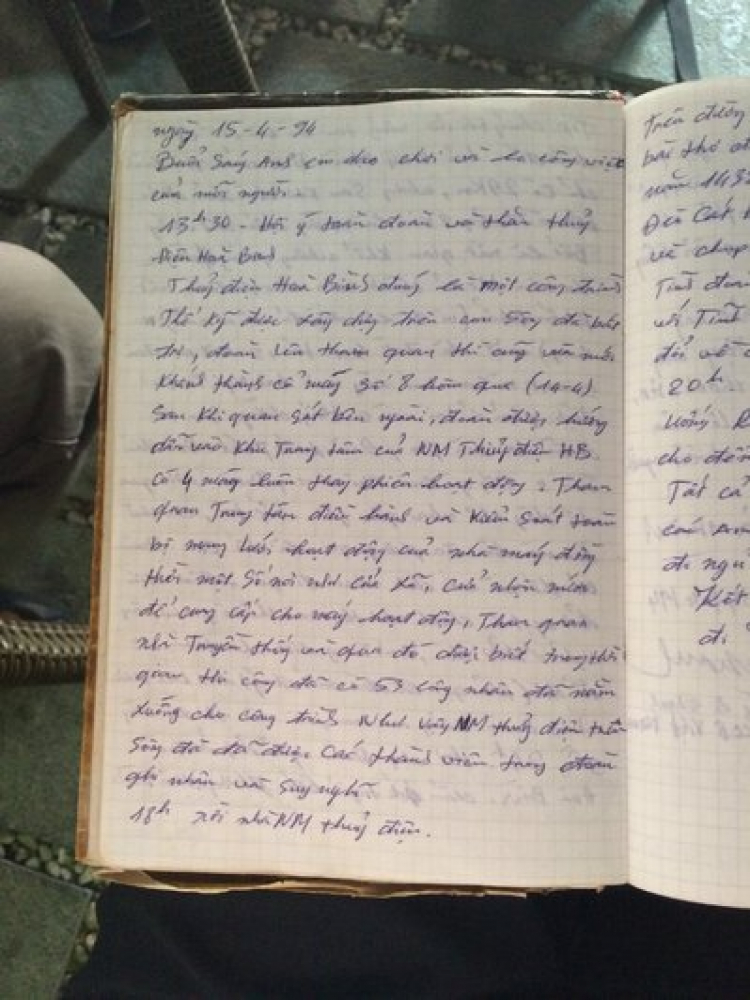 ngày 15-4-94
Buổi sáng Anh em dạo chơi và lo công việc
của mỗi người.
13h30 - Hội ý toàn đoàn và thăm thuỷ
điện Hoà Bình
Thuỷ điện Hoà Bình đúng là một công trình
Thế kỷ được xây dựng trên con Sông đà
đoàn lên tham quan thì cũng vừa mới
Khánh thành cổ máy số 8 hôm qua (14-4)
Sau khi quan sát bên ngoài, đoàn được hướng
dẫn vào Khu Trung tâm của NM Thuỷ điện HB
có 4 máy luôn thay phiên hoạt động. Tham
quan Trung tâm điều hành và Kiểm Soát toàn
bộ mạng lưới hoạt động của nhà máy đồng
thời một Số nơi như cửa xã, cửa nhận nước
để cung cấp cho máy hoạt động, Tham quan
nhà Truyền thống và qua đó được biết trong thời
gian thi công đã có 53 công nhân đã nằm
xuống cho công trình. Như vậy NM thuỷ điện trên
Sông đà đã được các thành viên trong đoàn
ghi nhận và suy nghĩ.
18h rời nhà NM thuỷ điện.
Trên đường
bài thơ
năm 143
Đèo Cát
và chụp
Tỉnh đoàn
với Tỉnh
20h
uống
cho đến
Tất cả
các
đi ngủ
đi